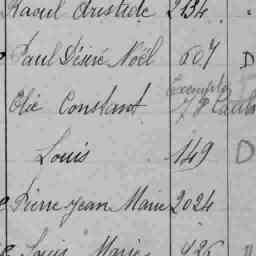 Raoul Aristide 2134
Paul Désiré Noël 607 D
Exempté
Constant
Louis 149 D
Pierre Jean Marie 2024
Louis Marie